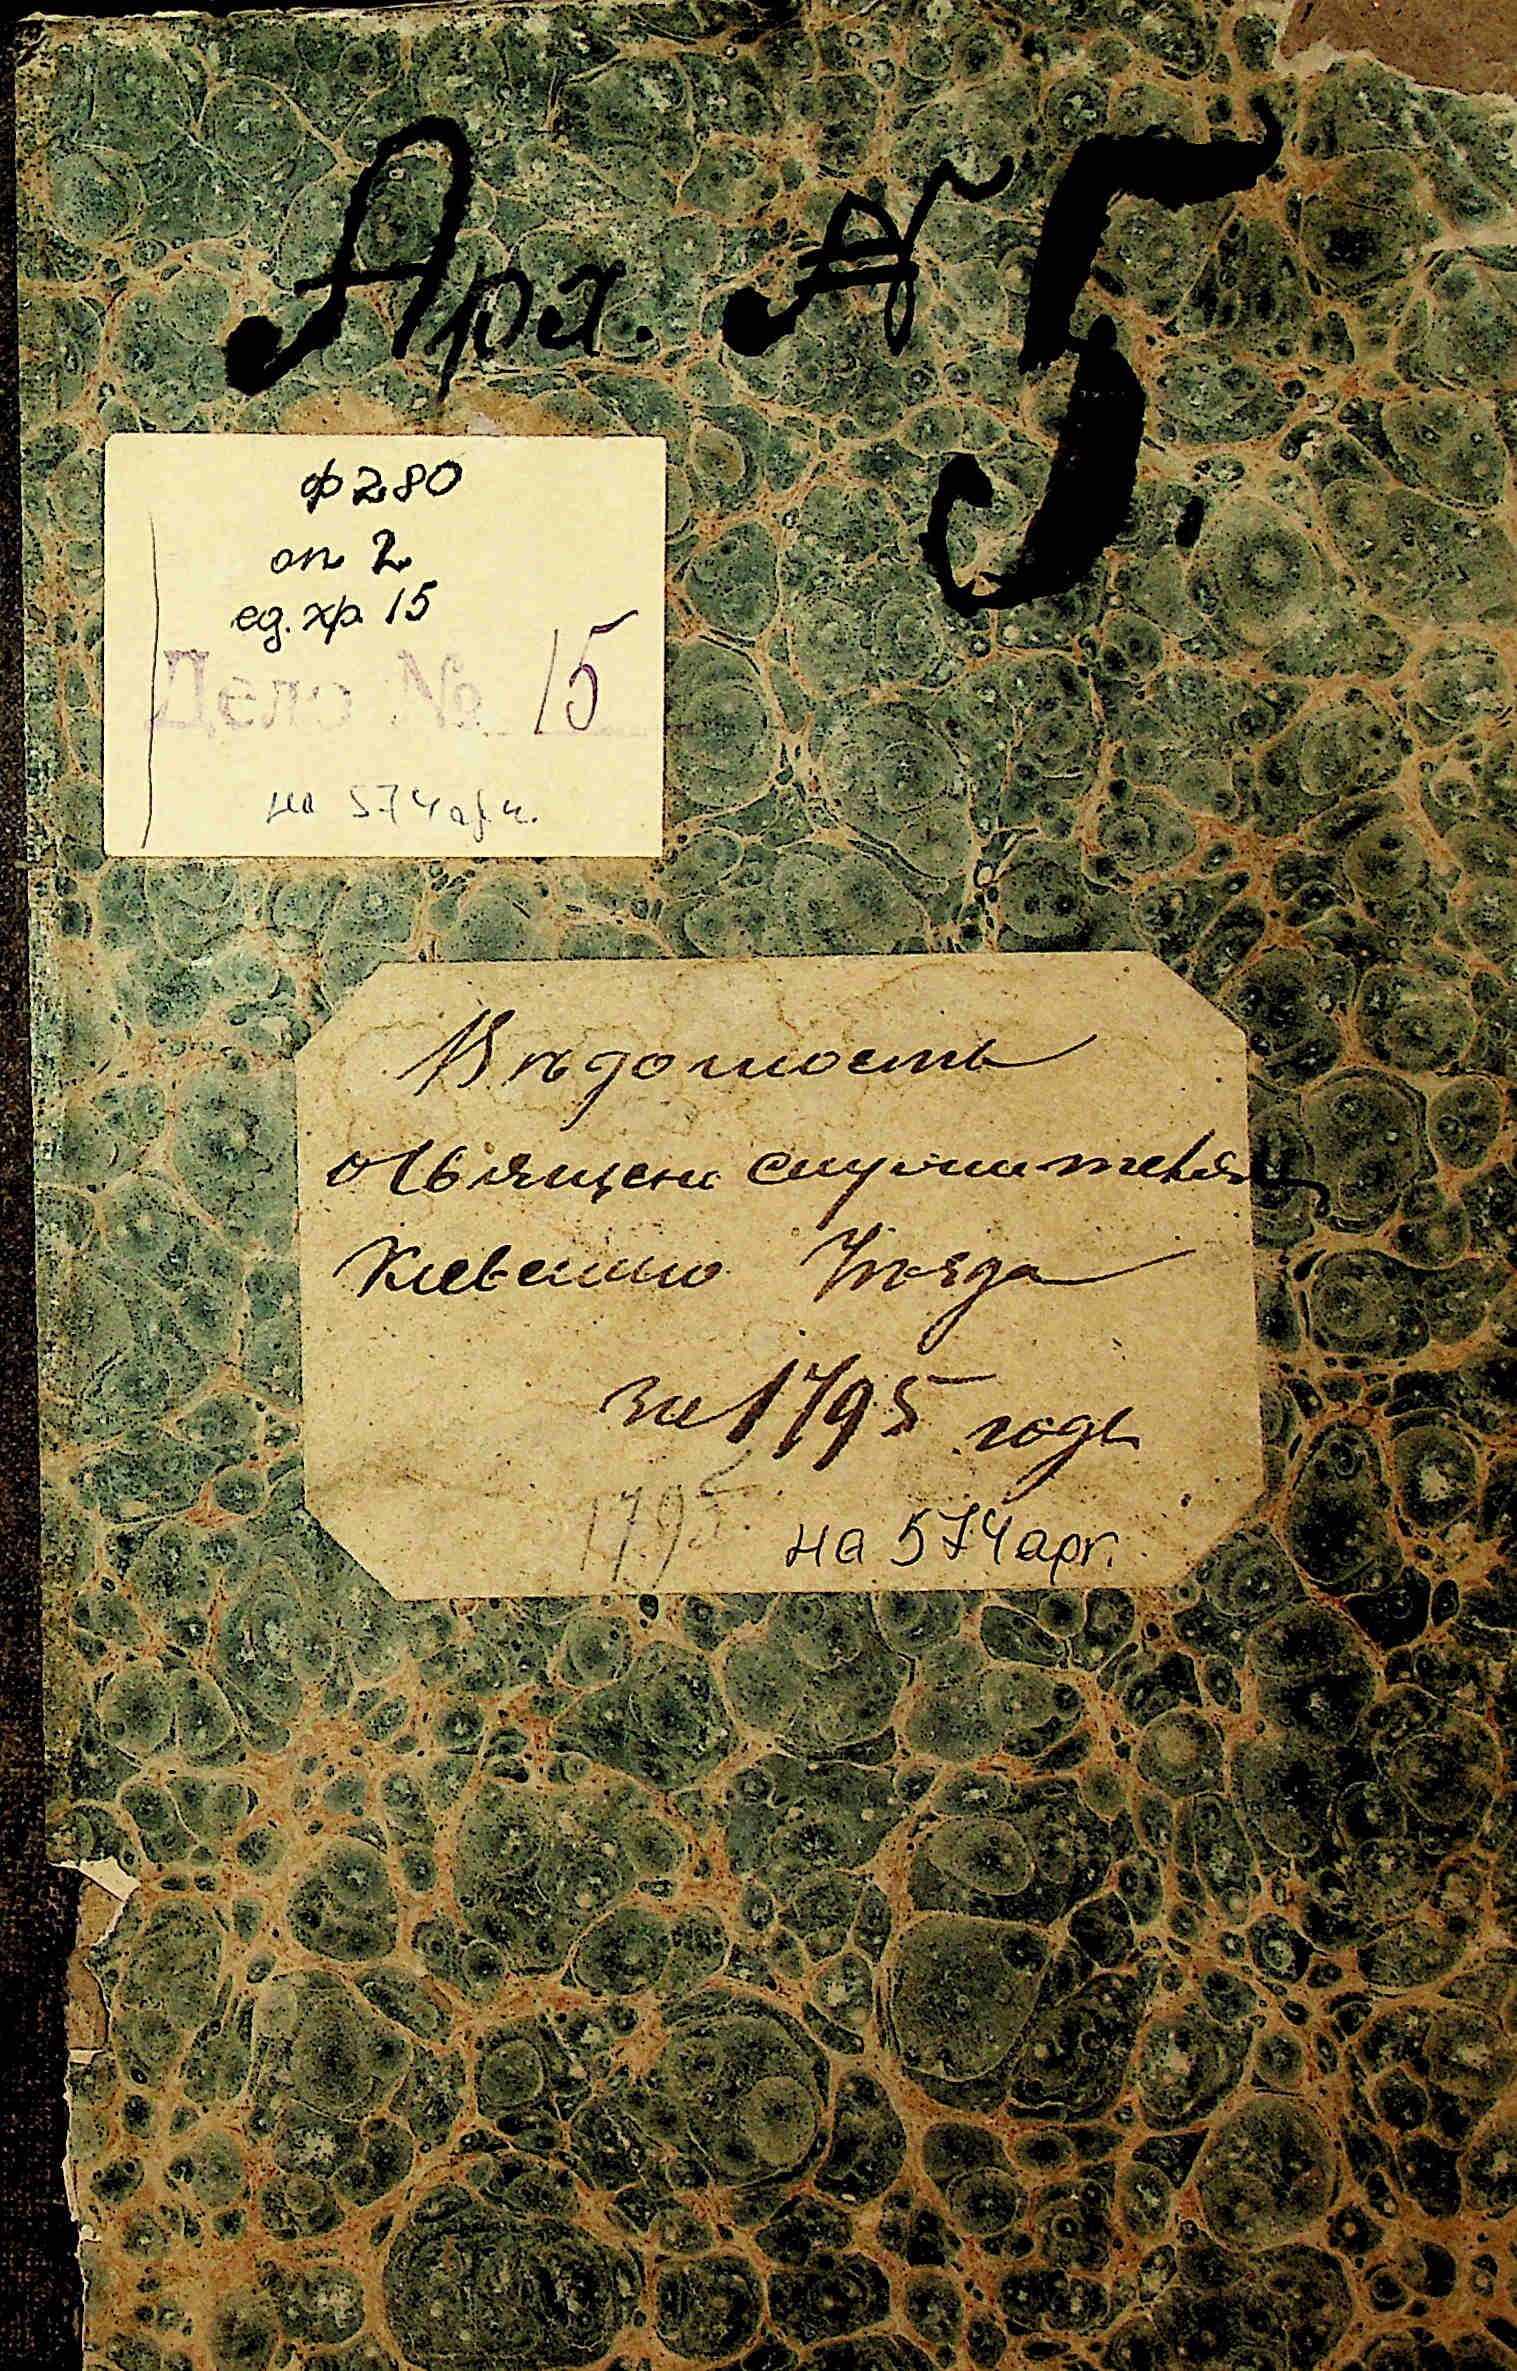 Арх. № 5.
ф 280
оп 2
ед. хр. 15
Дело № 15
на 574 арк.
Вѣдомость
о священно служителях
Киевскаго Уѣзда
за 1795 годъ
1795
на 574 арк.